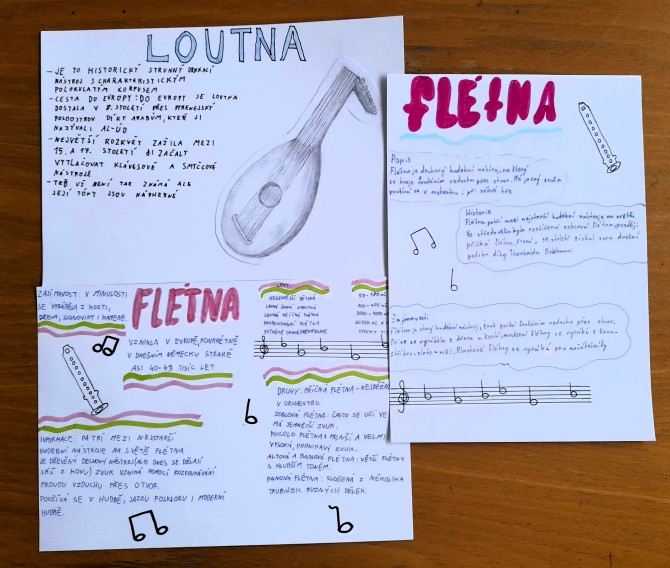 LOUTNA
- JE TO HISTORICKÝ STRUNNÝ DRNKACÍ
NÁSTROJ S CHARAKTERISTICKÝM
POLOKULATÝM KORPUSEM
- CESTA DO EVROPY: DO EVROPY SE LOUTNA
DOSTALA V 8. STOLETÍ PŘES PYRENEJSKÝ
POLOOSTROV DÍKY ARABŮM, KTEŘÍ JI
NAZÝVALI AL-ÚD
- NEJVĚTŠÍ ROZKVĚT ZAŽILA MEZI
15. A 17. STOLETÍ JI ZAČALY
VYTLAČOVAT KLÁVESOVÉ A SMYČCOVÉ
NÁSTROJE
- TEĎ UŽ NENÍ TAK ZNÁMÁ ALE
JEJÍ TÓNY JSOU NÁDHERNÉ
FLÉTNA
Popis
Flétna je dechový hudební nástroj, na který
se hraje foukáním vzduchu přes otvor. Má jasný zvuk
používá se v orchestru i při sólové hře
Historie
Flétna patří mezi nejstarší hudební nástroje na světě
Ve středověku byla rozšířená zobcová flétna, později
příčná flétna, která v 19. století získal svou dnešní
podobu díky Theobaldu Böhmovi
Zajímavosti
Flétna je dechový hudební nástroj, zvuk vzniká foukáním vzduchu přes otvor.
Dříve se vyráběla z dřeva a kosti, moderní flétny se vyrábí z kovu
stříbro-zlato-nikl. Plastové flétny se vyrábí pro začátečníky
ZAJÍMAVOST: V MINULOSTI
SE VYRÁBĚLA Z KOSTI,
DŘEVA, SLONOVINY I KAMENE.
FLÉTNA
VZNIKLA V EVROPĚ, KONKRÉTNĚ
V DNEŠNÍM NĚMECKU STARÉ
ASI 40-43 TISÍC LET
CENY:
NEJLEVNĚJŠÍ DĚTSKÁ
DRUHY: PŘÍČNÁ FLÉTNA - NEJBĚŽN
V ORCHESTRU.
ZOBCOVÁ FLÉTNA: ČASTO SE UČÍ VE
MÁ JEMNĚJŠÍ ZVUK.
PICCOLO FLÉTNA: MENŠÍ, A VELMI
VYSOKÝ, PRONIKAVÝ ZVUK.
ALTOVÁ A BASOVÁ FLÉTNA: VĚTŠÍ FLÉTNY
S HLUBŠÍM TÓNEM.
PANOVA FLÉTNA: SLOŽENÁ Z NĚKOLIKA
TRUBIČEK RŮZNÝCH DÉLEK.
INFORMACE: PATŘÍ MEZI NEJSTARŠÍ
HUDEBNÍ NÁSTROJE NA SVĚTĚ FLÉTNA
JE DŘEVĚNÝ DECHOVÝ NÁSTROJ (ALE DNES SE DĚLAJÍ
Z KOVU) ZVUK VZNIKÁ POMOCÍ
PROUDU VZDUCHU PŘES OTVOR.
POUŽÍVÁ SE V HUDBĚ, JAZZU FOLKLORU I MODERNÍ
HUDBĚ.